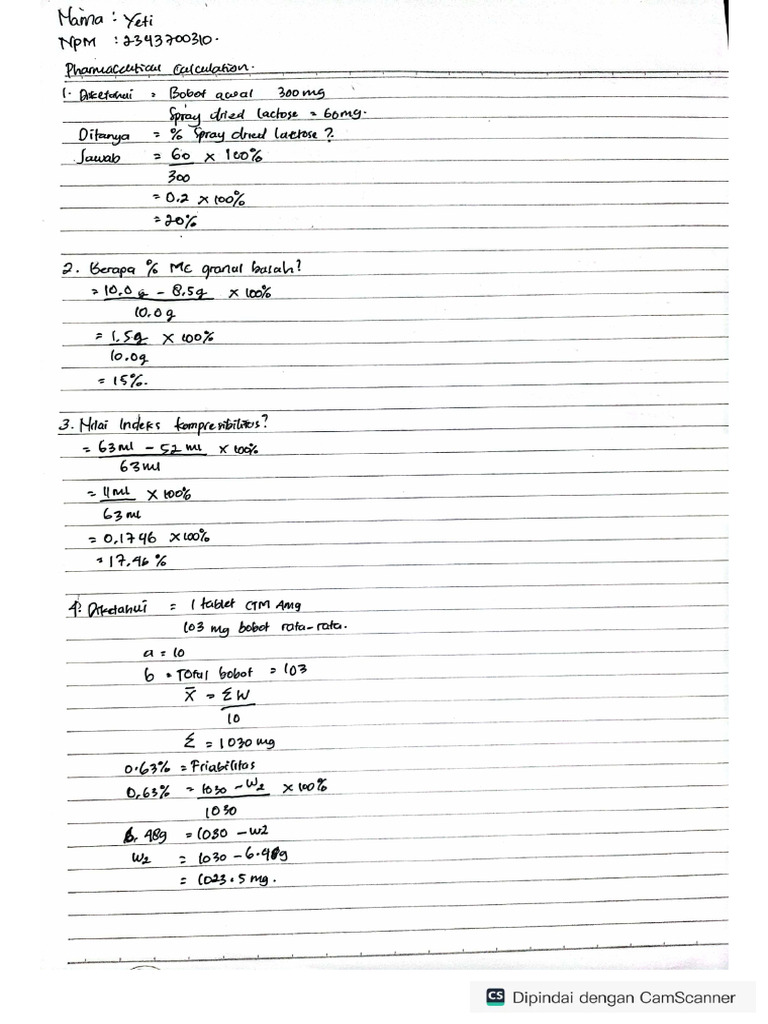 Nama : Yeti
NPM : 2343700310.
Pharmaceutical Calculation.
1. Diketahui = Bobot awal 300 mg
Spray dried lactose = 60 mg.
Ditanya = % Spray dried lactose ?
Jawab = 60 x 100%
300
= 0.2 x 100%
= 20%
2. Berapa % MC granul basah?
= 10.0 g - 8.5 g x 100%
10.0 g
= 1.5 g x 100%
10.0 g
= 15%.
3. Nilai Indeks kompresibilitas?
= 63 ml - 52 ml x 100%
63 ml
= 11 ml x 100%
63 ml
= 0,1746 x 100%
= 17,46 %
4. Diketahui = 1 tablet CTM 4mg
103 mg bobot rata-rata.
a = 10
b = Total bobot = 103
X̄ = ΣW
10
Σ = 1030 mg
0.63% = Friabilitas
0,63% = 1030 - W2 x 100%
1030
6.48g = 1030 - W2
W2 = 1030 - 6.48g
= 1023.5 mg.
CS Dipindai dengan CamScanner